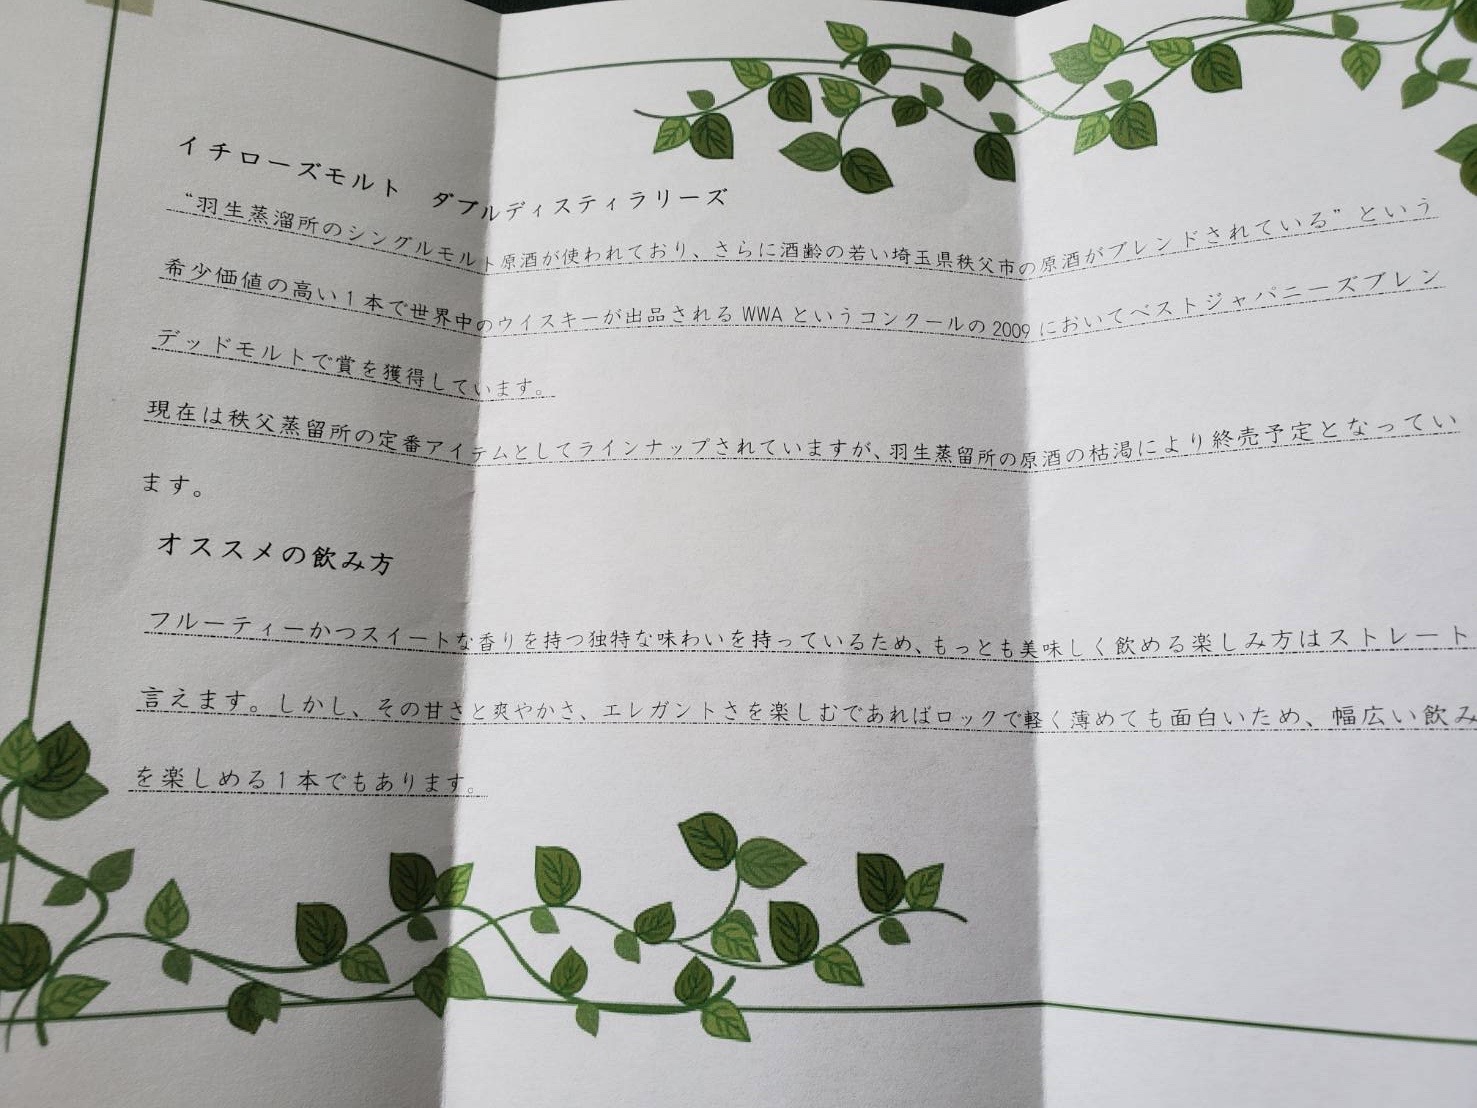 イチローズモルト　ダブルディスティラリーズ
“羽生蒸溜所のシングルモルト原酒が使われており、さらに酒齢の若い埼玉県秩父市の原酒がブレンドされている”という
希少価値の高い1本で世界中のウイスキーが出品されるWWAというコンクールの2009においてベストジャパニーズブレン
デッドモルトで賞を獲得しています。
現在は秩父蒸留所の定番アイテムとしてラインナップされていますが、羽生蒸留所の原酒の枯渇により終売予定となってい
ます。
オススメの飲み方
フルーティーかつスイートな香りを持つ独特な味わいを持っているため、もっとも美味しく飲める楽しみ方はストレート
言えます。しかし、その甘さと爽やかさ、エレガントさを楽しむであればロックで軽く薄めても面白いため、幅広い飲み
を楽しめる1本でもあります。